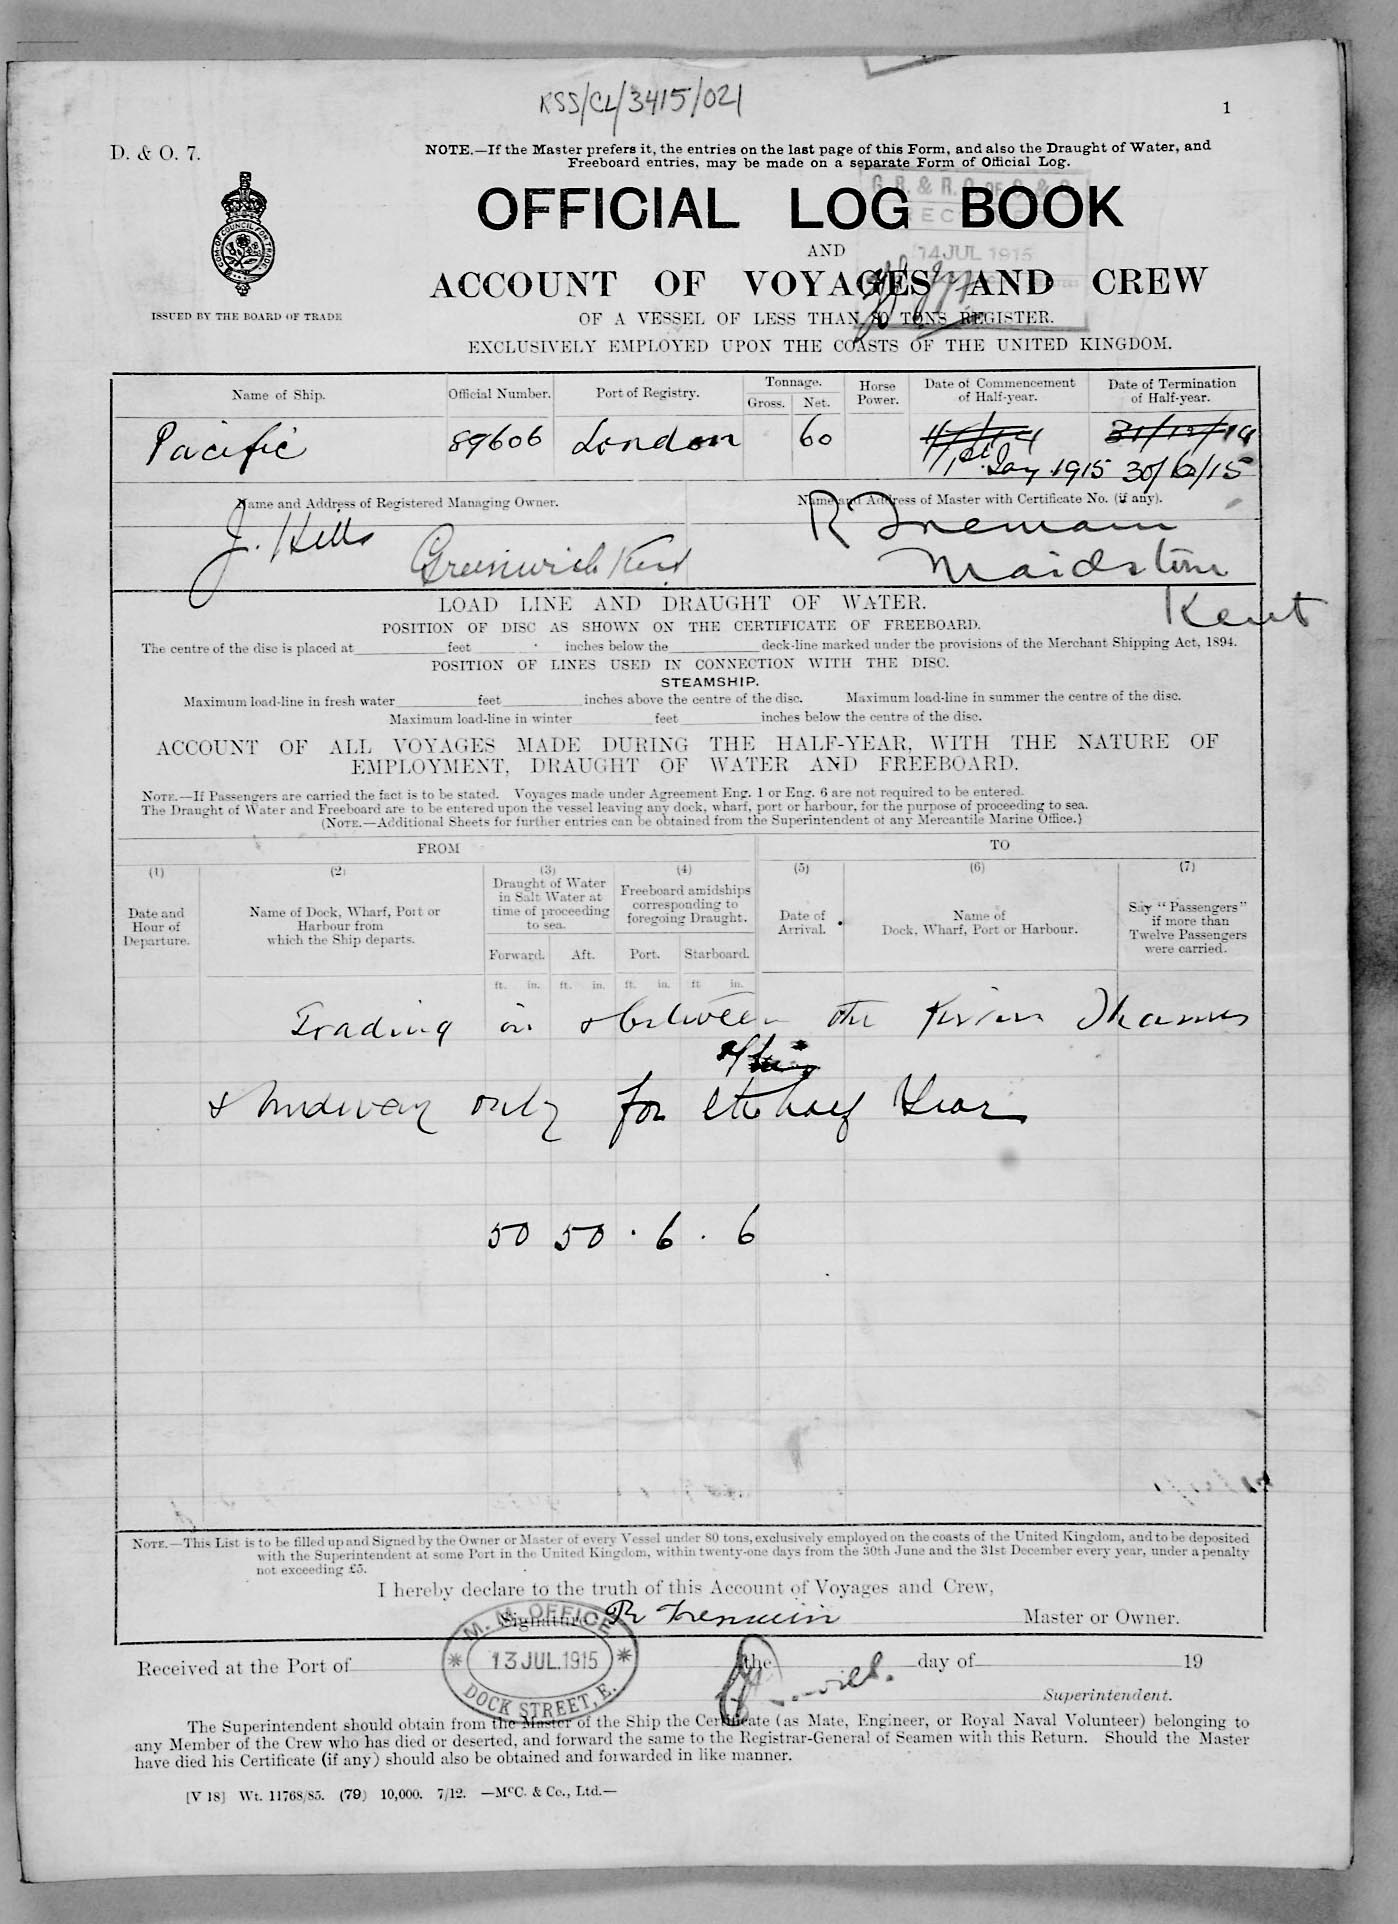 RSS/CL/3415/021
1
D. & O. 7.
NOTE.—If the Master prefers it, the entries on the last page of this Form, and also the Draught of Water, and
Freeboard entries, may be made on a separate Form of Official Log.
OFFICIAL LOG BOOK
14 JUL 1915
AND
ACCOUNT OF VOYAGES AND CREW
ISSUED BY THE BOARD OF TRADE
OF A VESSEL OF LESS THAN 80 TONS REGISTER.
EXCLUSIVELY EMPLOYED UPON THE COASTS OF THE UNITED KINGDOM.
Name of Ship. Official Number. Port of Registry. Tonnage. Horse Power. Date of Commencement of Half-year. Date of Termination of Half-year.
Gross. Net.
Pacific 89606 London 60 31/12/14
1st Jany 1915 30/6/15
Name and Address of Registered Managing Owner. Name and Address of Master with Certificate No. (if any).
J. Hills Greenwich Kent
R Tremain
Maidstone
Kent
LOAD LINE AND DRAUGHT OF WATER.
POSITION OF DISC AS SHOWN ON THE CERTIFICATE OF FREEBOARD.
The centre of the disc is placed at feet inches below the deck-line marked under the provisions of the Merchant Shipping Act, 1894.
POSITION OF LINES USED IN CONNECTION WITH THE DISC.
STEAMSHIP.
Maximum load-line in fresh water feet inches above the centre of the disc. Maximum load-line in summer the centre of the disc.
Maximum load-line in winter feet inches below the centre of the disc.
ACCOUNT OF ALL VOYAGES MADE DURING THE HALF-YEAR, WITH THE NATURE OF
EMPLOYMENT, DRAUGHT OF WATER AND FREEBOARD.
NOTE.—If Passengers are carried the fact is to be stated. Voyages made under Agreement Eng. 1 or Eng. 6 are not required to be entered.
The Draught of Water and Freeboard are to be entered upon the vessel leaving any dock, wharf, port or harbour, for the purpose of proceeding to sea.
(NOTE.—Additional Sheets for further entries can be obtained from the Superintendent of any Mercantile Marine Office.)
FROM TO
(1) (2) (3) (4) (5) (6) (7)
Date and Hour of Departure. Name of Dock, Wharf, Port or Harbour from which the Ship departs. Draught of Water in Salt Water at time of proceeding to sea. Freeboard amidships corresponding to foregoing Draught. Date of Arrival. Name of Dock, Wharf, Port or Harbour. Say "Passengers" if more than Twelve Passengers were carried.
Forward. Aft. Port. Starboard.
ft. in. ft. in. ft. in. ft in.
Trading in & between the River Thames
& Medway only for the half Year
50 50 · 6 · 6
NOTE.—This List is to be filled up and Signed by the Owner or Master of every Vessel under 80 tons, exclusively employed on the coasts of the United Kingdom, and to be deposited
with the Superintendent at some Port in the United Kingdom, within twenty-one days from the 30th June and the 31st December every year, under a penalty
not exceeding £5.
I hereby declare to the truth of this Account of Voyages and Crew,
Signature R Tremain Master or Owner.
M. M. OFFICE
13 JUL. 1915
DOCK STREET, E.
Received at the Port of the day of 19
Superintendent.
The Superintendent should obtain from the Master of the Ship the Certificate (as Mate, Engineer, or Royal Naval Volunteer) belonging to
any Member of the Crew who has died or deserted, and forward the same to the Registrar-General of Seamen with this Return. Should the Master
have died his Certificate (if any) should also be obtained and forwarded in like manner.
[V 18] Wt. 11768/85. (79) 10,000. 7/12. —McC. & Co., Ltd.—